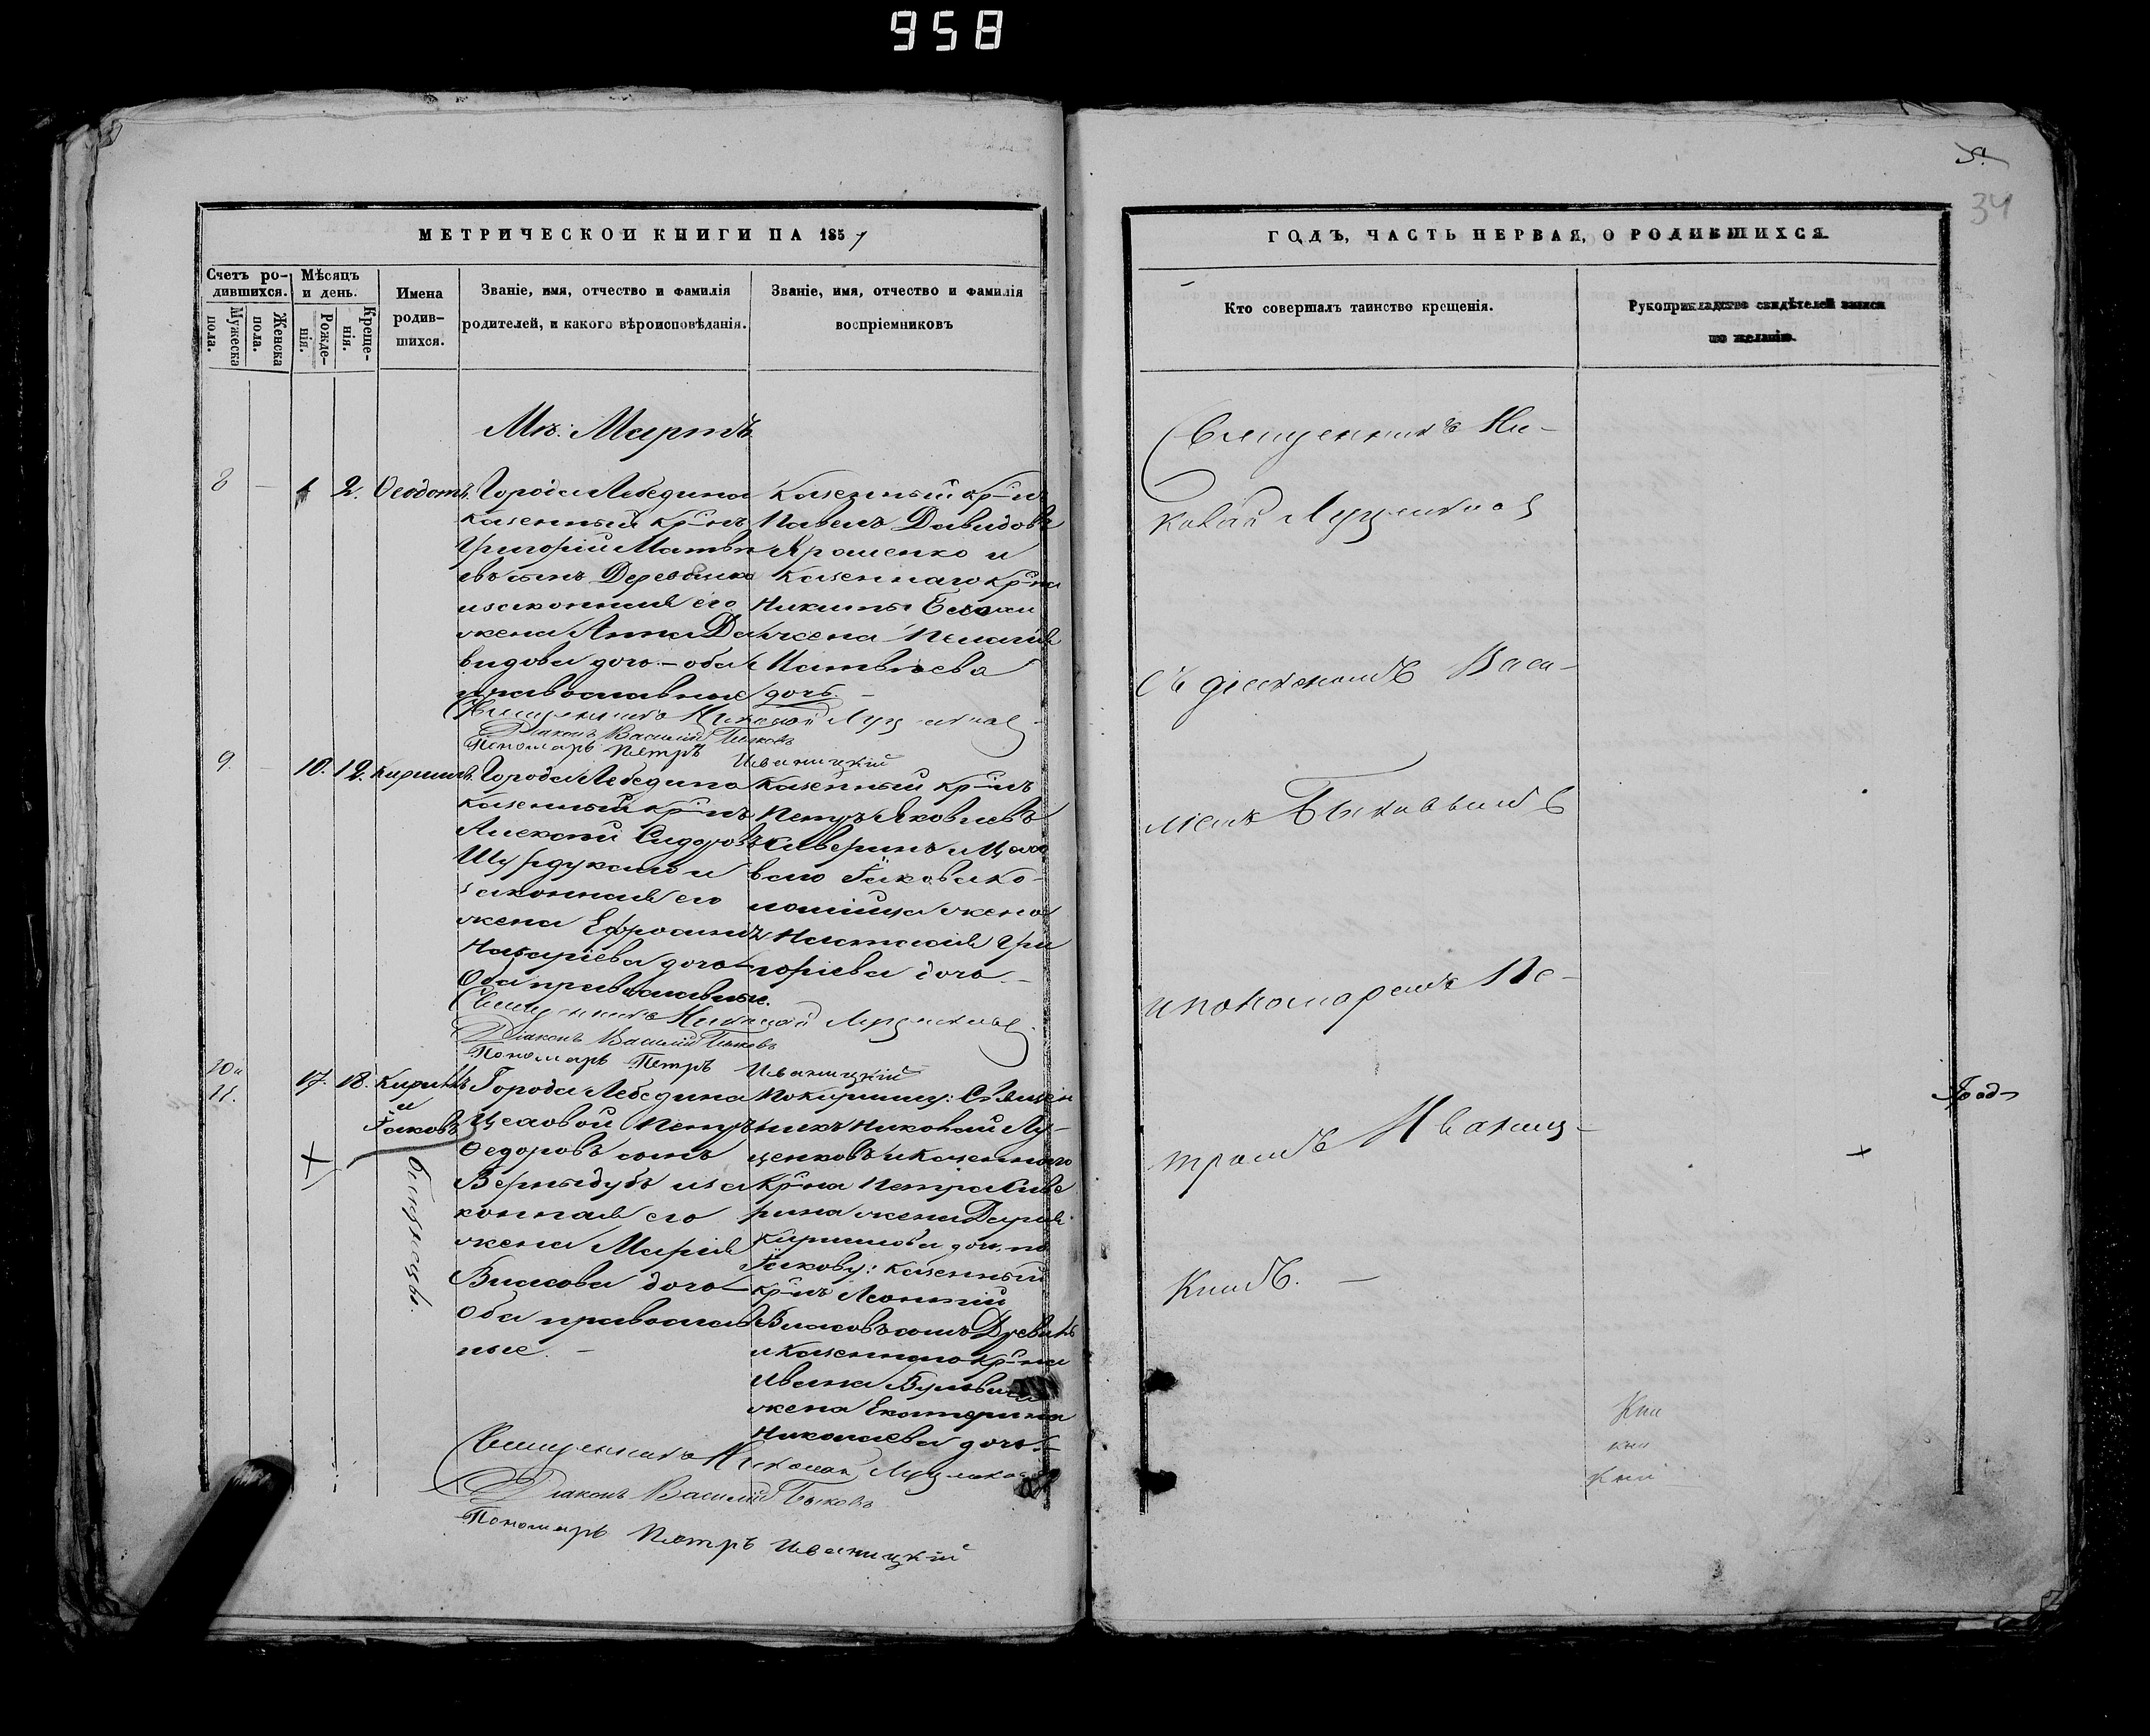 958
МЕТРИЧЕСКОЙ КНИГИ НА 1857
Счетъ ро-
дившихся.
Мужеска
пола.
Женска
пола.
Мѣсяцъ
и день.
Рожде-
нія.
Креще-
нія.
Имена
родив-
шихся.
Званіе, имя, отчество и фамилія
родителей, и какого вѣроисповѣданія.
Званіе, имя, отчество и фамилія
воспріемниковъ
Мц: Мартъ
8 — 1 2. Ѳеодотъ.
Города Лебедина
казенный кр-нъ
Григорій Матвѣ
евъ сынъ
и законная его
жена Анна Да
видова дочь — оба
православные
Казенный кр-нъ
Павелъ Давидовъ
Ярошенко и
казеннаго кр-на
Никиты
жена Пелагія
Матвѣева
дочь. —
Священникъ Николай Лущенковъ
Діаконъ Василій Быковъ
Пономарь Петръ Иваницкій
9. — 10. 12. Кириллъ.
Города Лебедина
казенный кр-нъ
Алексѣй Сидоровъ
и
законная его
жена
Назаріева дочь —
Оба православные.
Казенный кр-нъ
Петръ Яковлевъ
Киверинъ и Цехо
ваго Іакова Ко-
жена
Настасія Гри
горіева дочь —
Священникъ Николай Лущенковъ
Діаконъ Василій Быковъ
Пономарь Петръ Иваницкій
10 и
11. 17. 18. Кириллъ
и
Іаковъ
близнецы.
Города Лебедина
Цеховой Петръ
Ѳедоровъ сынъ
Верныдубъ и за
конная его
жена Марія
Власова дочь —
Оба православ
ные. —
По Кириллу: Священ
никъ Николай Лу-
ценковъ и казеннаго
кр-на Петра Киве
рина жена Дарія
Кириллова дочь, по
Іакову: казенный
кр-нъ Леонтій
Власовъ сынъ
и казеннаго кр-на
Ивана
жена Екатерина
Николаева дочь —
Священникъ Николай Лущенковъ
Діаконъ Василій Быковъ
Пономарь Петръ Иваницкій
34
ГОДЪ, ЧАСТЬ ПЕРВАЯ, О РОДИВШИХСЯ.
Кто совершалъ таинство крещенія.
Рукоприкладство свидѣтелей записи
по желанію.
Священникъ Ни-
колай Лущенковъ
съ діакономъ Васи-
ліемъ Быковымъ
и пономаремъ Пе-
тромъ Иваниц-
кимъ. —